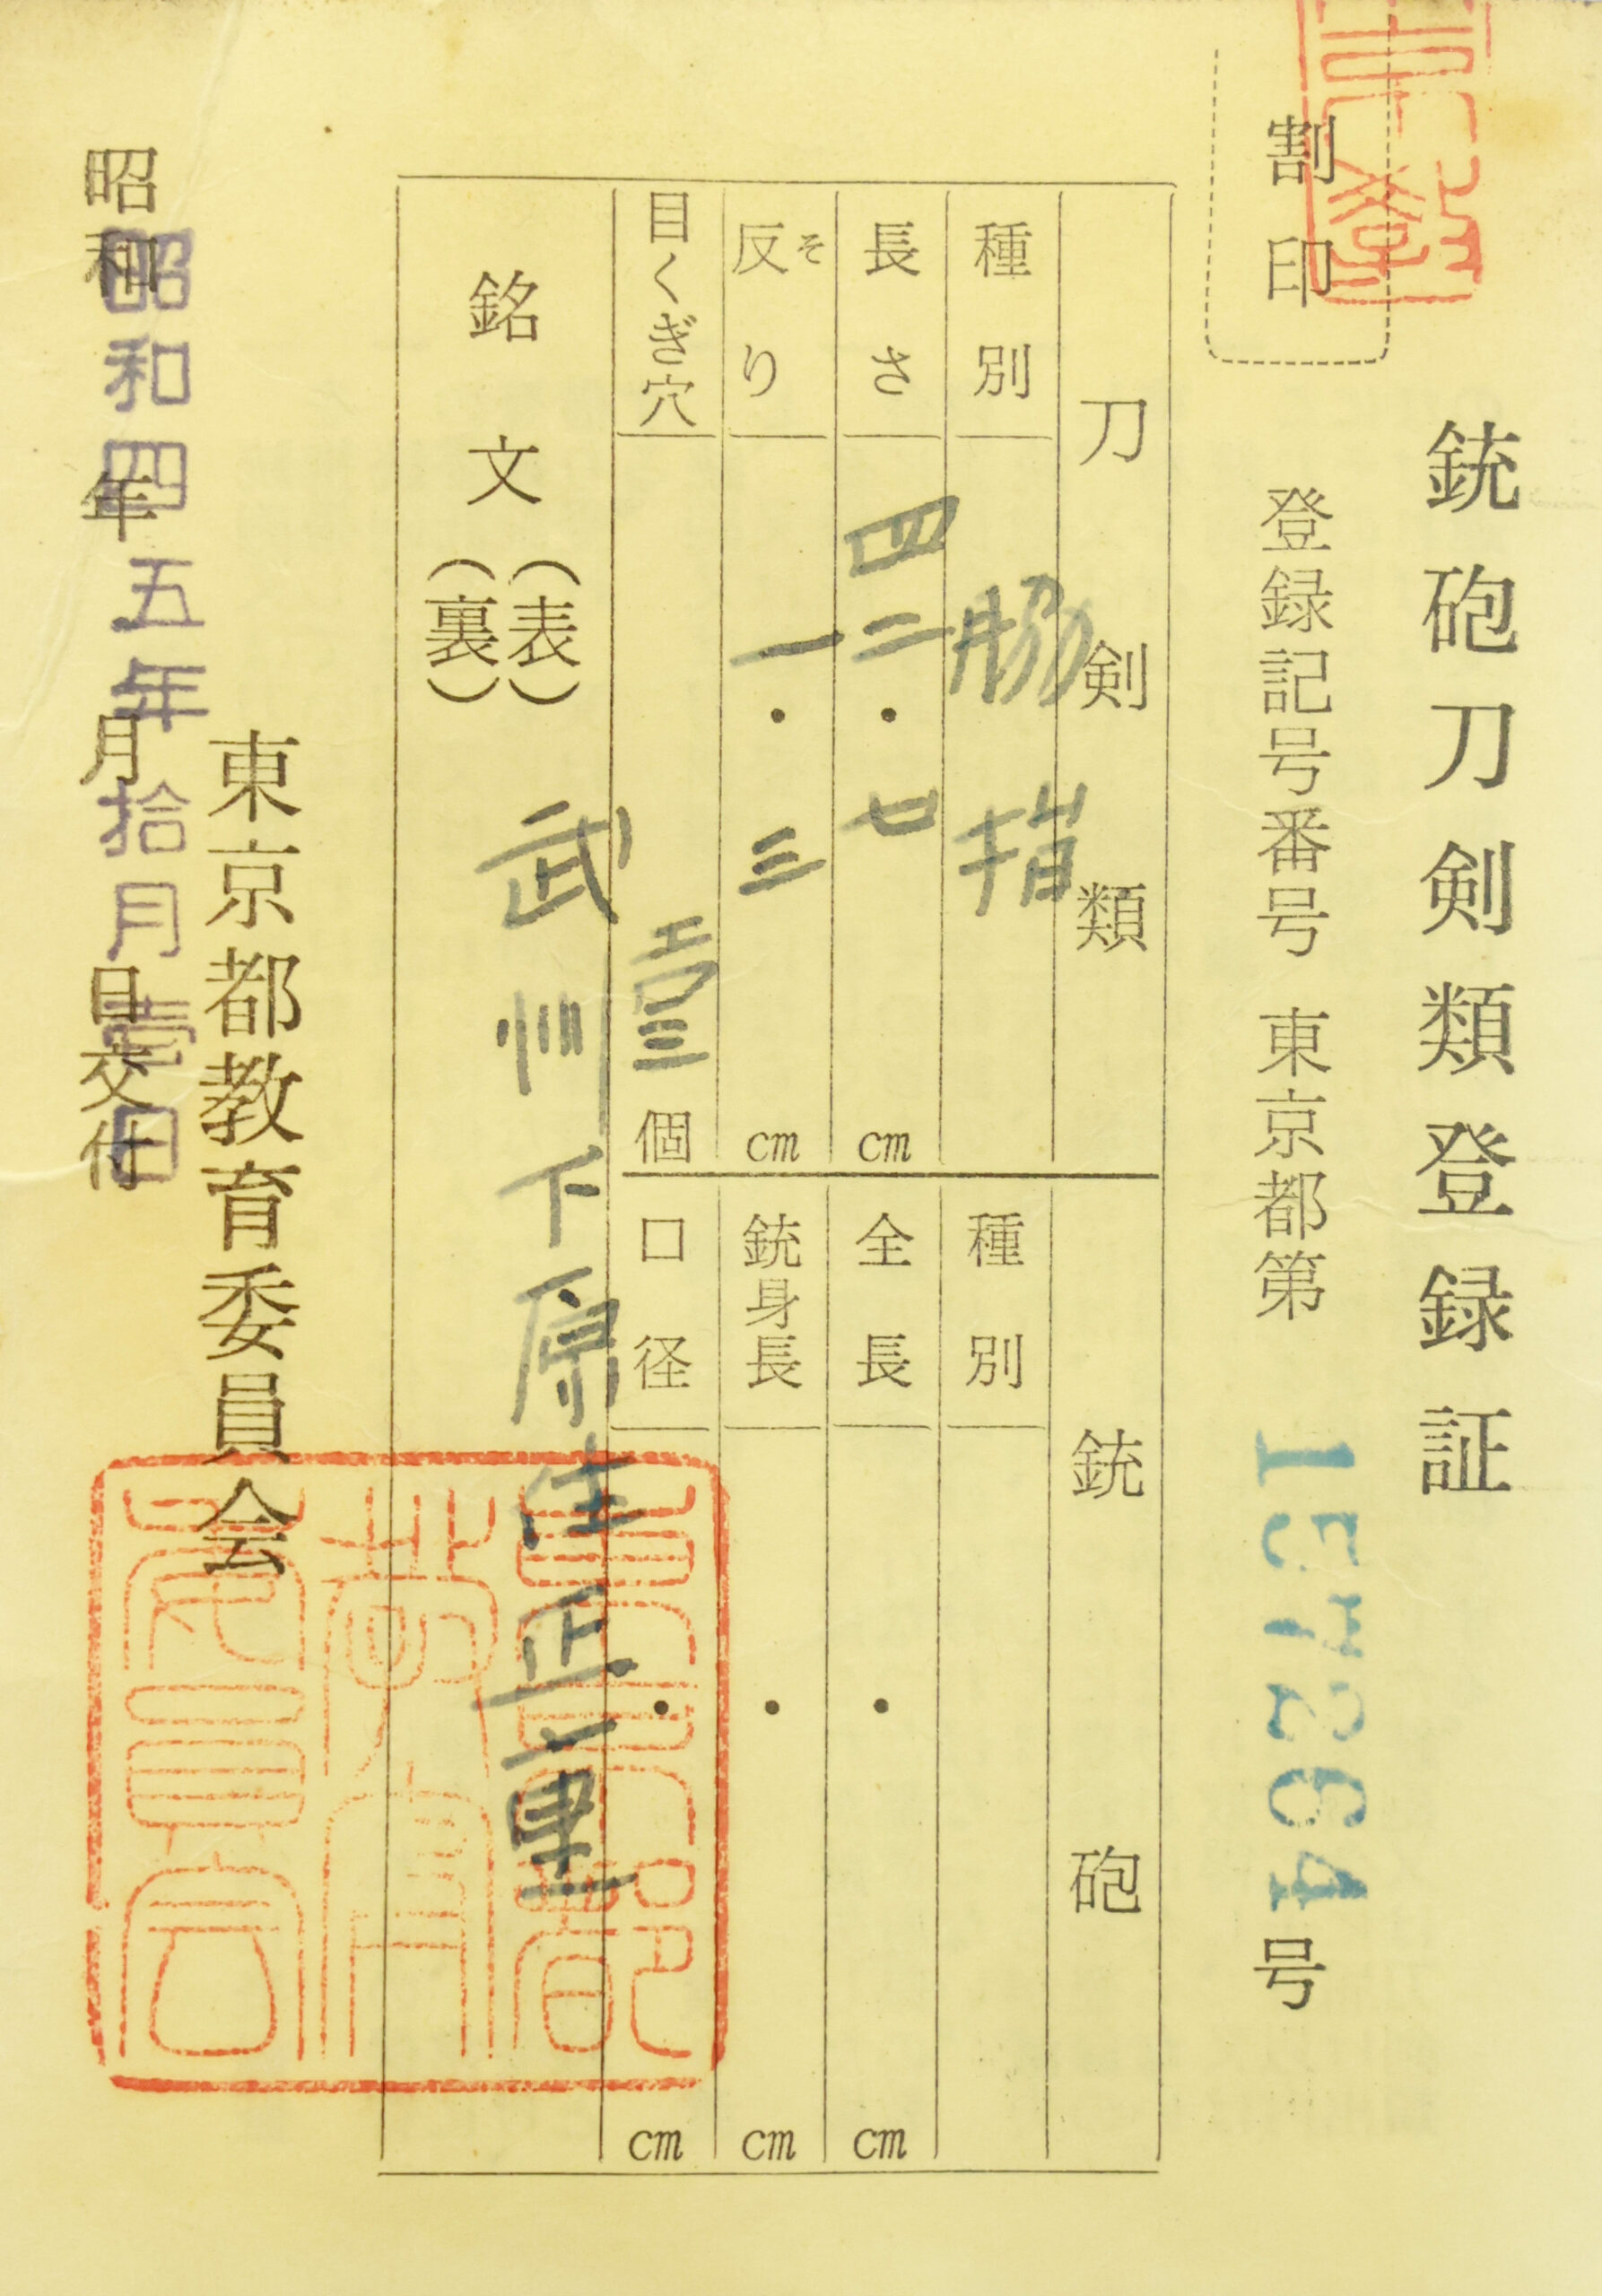 銃砲刀剣類登録証
割印
登録記号番号 東京都第 157264号
刀剣類
種別 脇指
長さ 四二・七 cm
反り そ 一・三 cm
目くぎ穴 壹個
銃砲
種別
全長 ・ cm
銃身長 ・ cm
口径 ・ cm
銘文
(表) 武州下原住正重
(裏)
東京都教育委員会
昭和 年 月 日交付
昭和四五年拾月壹日